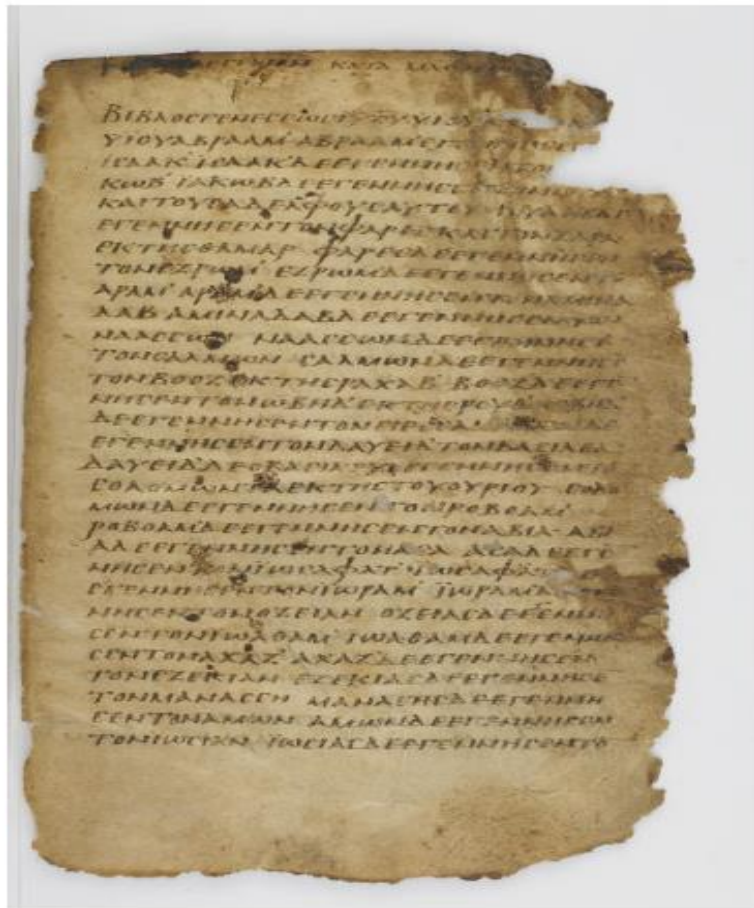 ΚΑΤΑ ΜΑΘ
ΒΙΒΛΟϹΓΕΝΕϹΕΩϹΙΥΧΥΥΙΟΥ
ΥΙΟΥΑΒΡΑΑΜ ΑΒΡΑΑΜΕΓΕΝΝΗϹΕ
ΙϹΑΑΚ ΙϹΑΑΚΔΕΕΓΕΝΝΗϹΕ
ΚΩΒ ΙΑΚΩΒΔΕΕΓΕΝΝΗϹΕ
ΚΑΙΤΟΥϹΑΔΕΛΦΟΥϹΑΥΤΟΥ ΙΟΥΔΑϹΔΕ
ΕΓΕΝΝΗϹΕΝΤΟΝΦΑΡΕϹΚΑΙΤΟΝΖΑΡΑ
ΕΚΤΗϹΘΑΜΑΡ ΦΑΡΕϹΔΕΕΓΕΝΝΗϹΕΝ
ΤΟΝΕΖΡΩΜ ΕΖΡΩΜΔΕΕΓΕΝΝΗϹΕΝ
ΑΡΑΜ ΑΡΑΜΔΕΕΓΕΝΝΗϹΕΝΤΟΝΑΜΙΝΑ
ΔΑΒ ΑΜΙΝΑΔΑΒΔΕΕΓΕΝΝΗϹΕΝΤΟΝ
ΝΑΑϹϹΩΝ ΝΑΑϹϹΩΝΔΕΕΓΕΝΝΗϹΕ
ΤΟΝϹΑΛΜΩΝ ϹΑΛΜΩΝΔΕΕΓΕΝΝΗϹΕ
ΤΟΝΒΟΟΖΕΚΤΗϹΡΑΧΑΒ ΒΟΟΖΔΕΕΓΕ
ΝΗϹΕΝΤΟΝΙΩΒΗΔΕΚΤΗϹΡΟΥΘ ΙΩΒΗΔ
ΔΕΕΓΕΝΝΗϹΕΝΤΟΝΙΕϹϹΑΙ ΙΕϹϹΑΙΔΕ
ΕΓΕΝΝΗϹΕΝΤΟΝΔΑΥΕΙΔΤΟΝΒΑϹΙΛΕΑ
ΔΑΥΕΙΔΔΕΟΒΑϹΙΛΕΥϹΕΓΕΝΝΗϹΕΝ
ϹΟΛΟΜΩΝΤΑΕΚΤΗϹΤΟΥΟΥΡΙΟΥ ϹΟΛΟ
ΜΩΝΔΕΕΓΕΝΝΗϹΕΝΤΟΝΡΟΒΟΑΜ
ΡΟΒΟΑΜΔΕΕΓΕΝΝΗϹΕΝΤΟΝΑΒΙΑ ΑΒΙ
ΑΔΕΕΓΕΝΝΗϹΕΝΤΟΝΑϹΑ ΑϹΑΔΕΕΓΕ
ΝΗϹΕΝΤΟΝΪΩϹΑΦΑΤ ΪΩϹΑΦΑΤ
ΕΓΕΝΝΗϹΕΝΤΟΝΪΩΡΑΜ ΪΩΡΑΜΔΕ
ΝΗϹΕΝΤΟΝΟΖΕΙΑΝ ΟΖΕΙΑϹΔΕΕΓΕΝΝΗ
ϹΕΝΤΟΝΙΩΑΘΑΜ ΙΩΑΘΑΜΔΕΕΓΕΝΝΗ
ϹΕΝΤΟΝΑΧΑΖ ΑΧΑΖΔΕΕΓΕΝΝΗϹΕΝ
ΤΟΝΕΖΕΚΙΑΝ ΕΖΕΚΙΑϹΔΕΕΓΕΝΝΗϹΕ
ΤΟΝΜΑΝΑϹϹΗ ΜΑΝΑϹϹΗϹΔΕΕΓΕΝΝΗ
ϹΕΝΤΟΝΑΜΩΝ ΑΜΩΝΔΕΕΓΕΝΝΗϹΕΝ
ΤΟΝΙΩϹΙΑΝ ΪΩϹΙΑϹΔΕΕΓΕΝΝΗϹΕΝΤΟ